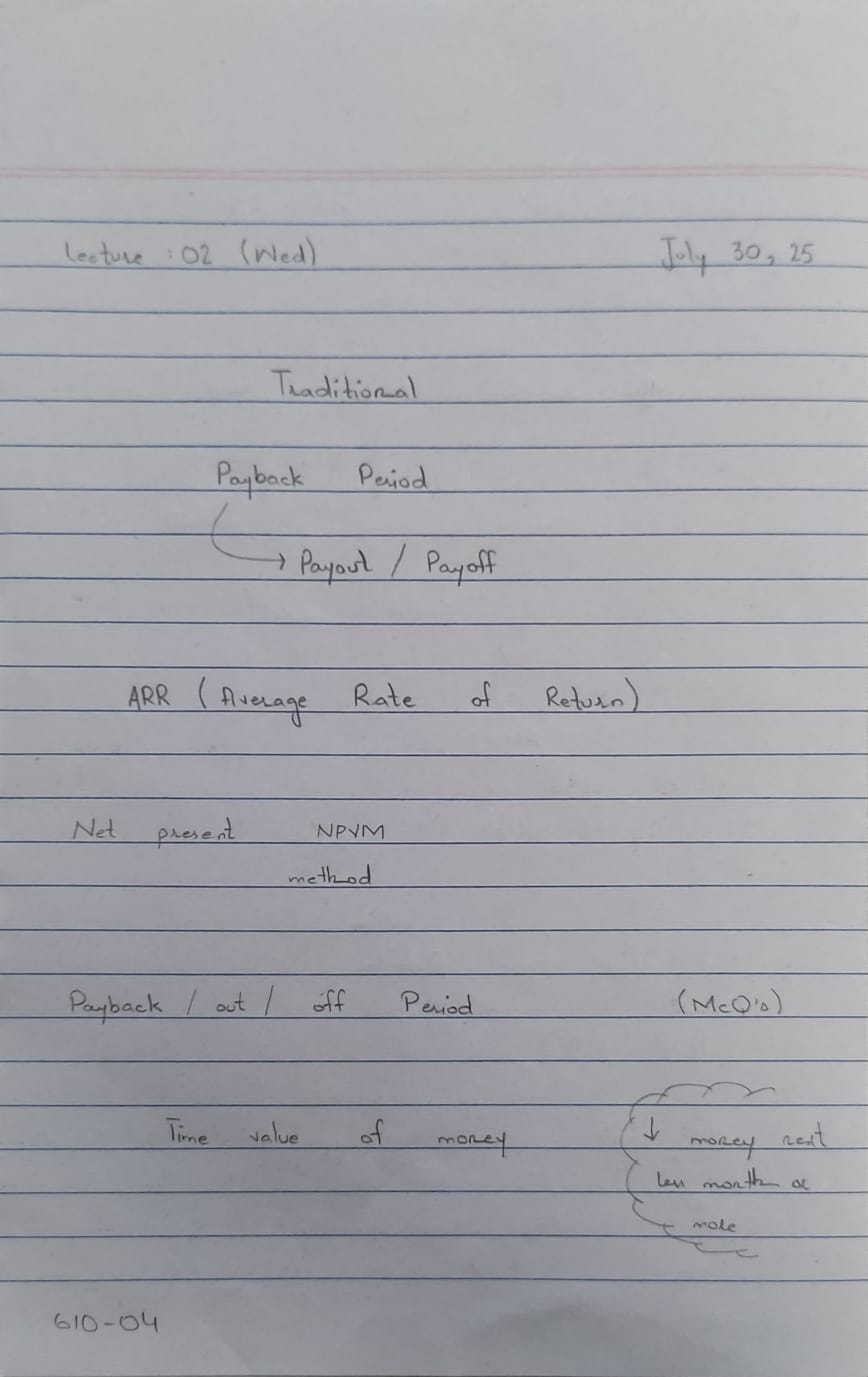 Lecture : 02 (Wed) July 30, 25
Traditional
Payback Period
→ Payout / Payoff
ARR (Average Rate of Return)
Net present NPVM
method
Payback / out / off Period (McQ's)
Time value of money
↓ money rent
less month or
more
610-04